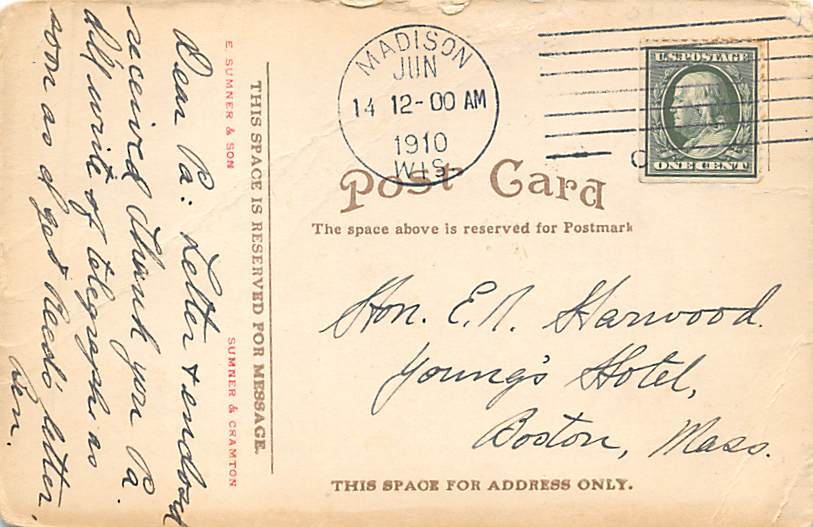 MADISON
JUN
14 12-00 AM
1910
WIS.
U.S. POSTAGE
ONE CENT
Post Card
The space above is reserved for Postmark
Hon. E. N. Harwood.
Young's Hotel,
Boston, Mass.
THIS SPACE FOR ADDRESS ONLY.
THIS SPACE IS RESERVED FOR MESSAGE.
E. SUMNER & SON
SUMNER & CRAMTON
Dear Pa: Letter & enclosed
received thank you Pa.
I'll write or telegraph as
soon as I get Reed's letter.
Ben.